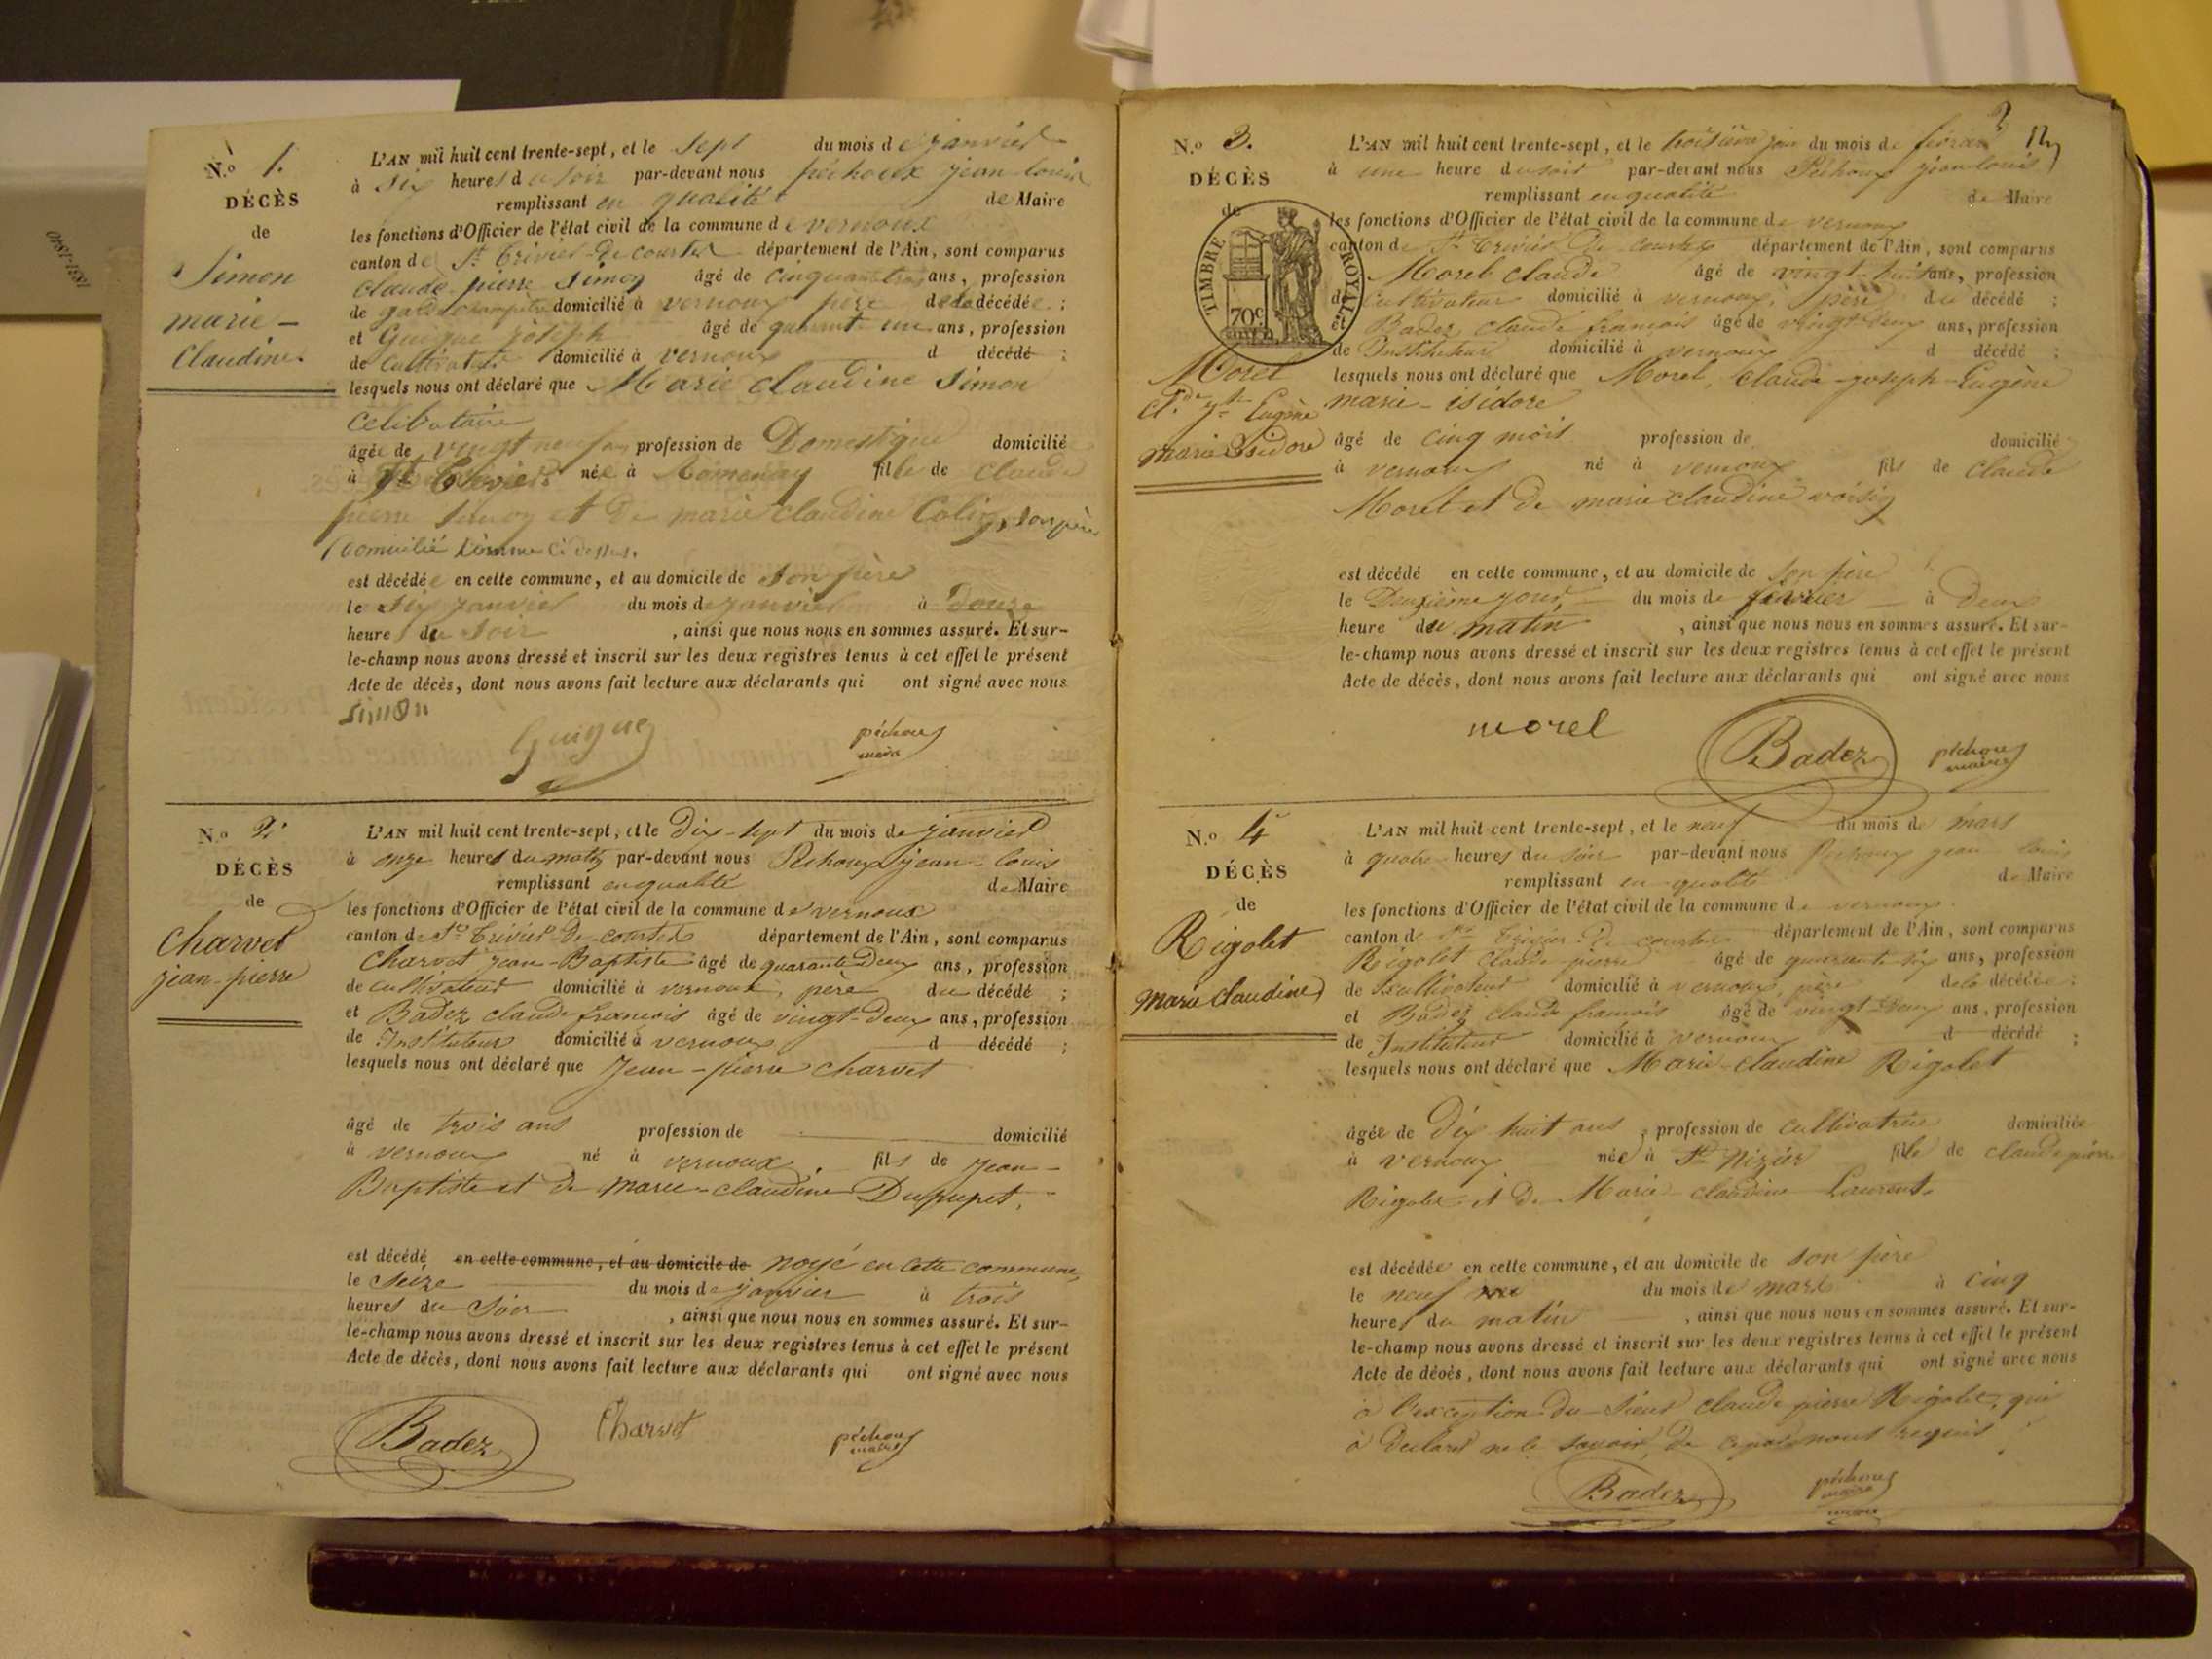 N.o 1.
DÉCÈS
de
Simon
marie-
Claudine.
L'AN mil huit cent trente-sept, et le sept du mois de janvier
à six heures du soir par-devant nous péchoux jean louis
remplissant en qualité de Maire
les fonctions d'Officier de l'état civil de la commune de vernoux
canton de St Trivier de courtes département de l'Ain, sont comparus
claude pierre Simon âgé de cinquante trois ans, profession
de garde champêtre domicilié à vernoux père de la décédée ;
et Guigue joseph âgé de quarante un ans, profession
de cultivateur domicilié à vernoux d décédé ;
lesquels nous ont déclaré que Marie claudine Simon
celibataire
âgée de vingt neuf ans profession de Domestique domicilié
à St Trivier née à Romenay fille de claude
pierre Simon et de marie claudine Colin, son père
domicilié comme ci dessus.
est décédée en cette commune, et au domicile de son père
le six janvier du mois de janvier à Douze
heures du soir , ainsi que nous nous en sommes assuré. Et sur-
le-champ nous avons dressé et inscrit sur les deux registres tenus à cet effet le présent
Acte de décès, dont nous avons fait lecture aux déclarants qui ont signé avec nous
Simon
Guigue
péchoux
maire
N.o 2.
DÉCÈS
de
Charvet
jean-pierre
L'AN mil huit cent trente-sept, et le Dix-sept du mois de janvier
à onze heures du matin par-devant nous Péchoux jean-louis
remplissant en qualité de Maire
les fonctions d'Officier de l'état civil de la commune de vernoux
canton de St Trivier-De-courtes département de l'Ain, sont comparus
Charvet jean-Baptiste âgé de quarante Deux ans, profession
de cultivateur domicilié à vernoux, père du décédé ;
et Badez claude françois âgé de vingt-Deux ans, profession
de Instituteur domicilié à vernoux d décédé ;
lesquels nous ont déclaré que Jean-pierre Charvet
âgé de trois ans profession de domicilié
à vernoux né à vernoux, fils de jean-
Baptiste et de marie-claudine Dupupet,
est décédé en cette commune, et au domicile de noyé en cette commune,
le seize du mois de janvier à trois
heures du soir , ainsi que nous nous en sommes assuré. Et sur-
le-champ nous avons dressé et inscrit sur les deux registres tenus à cet effet le présent
Acte de décès, dont nous avons fait lecture aux déclarants qui ont signé avec nous
Badez
Charvet
péchoux
maire
N.o 3.
DÉCÈS
de
TIMBRE ROYAL
70c
Morel
cl.de jh Eugène
marie Isidore
L'AN mil huit cent trente-sept, et le troisième jour du mois de février
à une heure du soir par-devant nous Péchoux jean louis
remplissant en qualité de Maire
les fonctions d'Officier de l'état civil de la commune de vernoux
canton de St Trivier De courtes département de l'Ain, sont comparus
Morel claude âgé de vingt huit ans, profession
de cultivateur domicilié à vernoux, père du décédé ;
et Badez claude françois âgé de vingt-Deux ans, profession
de Instituteur domicilié à vernoux d décédé ;
lesquels nous ont déclaré que Morel, claude-joseph-Eugène
marie-isidore
âgé de cinq mois profession de domicilié
à vernoux né à vernoux fils de claude
Morel et de marie claudine voisin
est décédé en cette commune, et au domicile de son père
le Deuxième jour, du mois de février à Deux
heure du matin , ainsi que nous nous en sommes assuré. Et sur-
le-champ nous avons dressé et inscrit sur les deux registres tenus à cet effet le présent
Acte de décès, dont nous avons fait lecture aux déclarants qui ont signé avec nous
morel
Badez
péchoux
maire
N.o 4
DÉCÈS
de
Rigolet
marie claudine
L'AN mil huit cent trente-sept, et le neuf du mois de mars
à quatre heures du soir par-devant nous Péchoux jean louis
remplissant en qualité de Maire
les fonctions d'Officier de l'état civil de la commune de vernoux
canton de St Trivier De courtes département de l'Ain, sont comparus
Rigolet claude pierre âgé de quarante six ans, profession
de cultivateur domicilié à vernoux, père de la décédée ;
et Badez claude françois âgé de vingt Deux ans, profession
de Instituteur domicilié à vernoux d décédé ;
lesquels nous ont déclaré que Marie-claudine Rigolet
âgée de dix huit ans, profession de cultivatrice domiciliée
à vernoux née à St Nizier fille de claude pierre
Rigolet et De Marie-claudine Laurent.
est décédée en cette commune, et au domicile de son père
le neuf du mois de mars à cinq
heures du matin , ainsi que nous nous en sommes assuré. Et sur-
le-champ nous avons dressé et inscrit sur les deux registres tenus à cet effet le présent
Acte de décès, dont nous avons fait lecture aux déclarants qui ont signé avec nous
à l'exception du sieur claude pierre Rigolet, qui
à Déclaré ne le savoir, de ce par nous requis
Badez
péchoux
maire
1831-1840